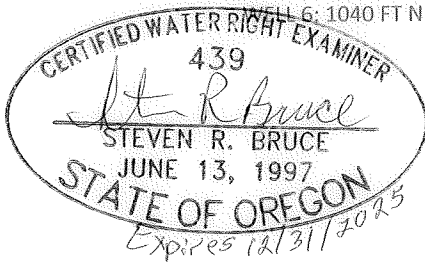 WELL 6: 1040 FT N
CERTIFIED WATER RIGHT EXAMINER
439
Steven R Bruce
STEVEN R. BRUCE
JUNE 13, 1997
STATE OF OREGON
Expires 12/31/2025